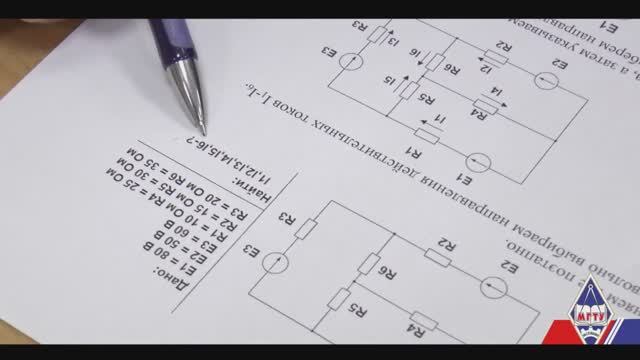 Дано:
E1 = 80 В
E2 = 50 В
E3 = 60 В
R1 = 10 Ом R4 = 25 Ом
R2 = 15 Ом R5 = 30 Ом
R3 = 20 Ом R6 = 35 Ом
Найти:
I1,I2,I3,I4,I5,I6-?
R4
R5
E2
R6
R2
E3
R3
поэтапно.
выбираем направления действительных токов I₁-I₆.
E1
R1
I1
R4
I4
R5
I5
R6
I6
E2
R2
I2
E3
R3
I3
а затем указываем
E1
МГТУ